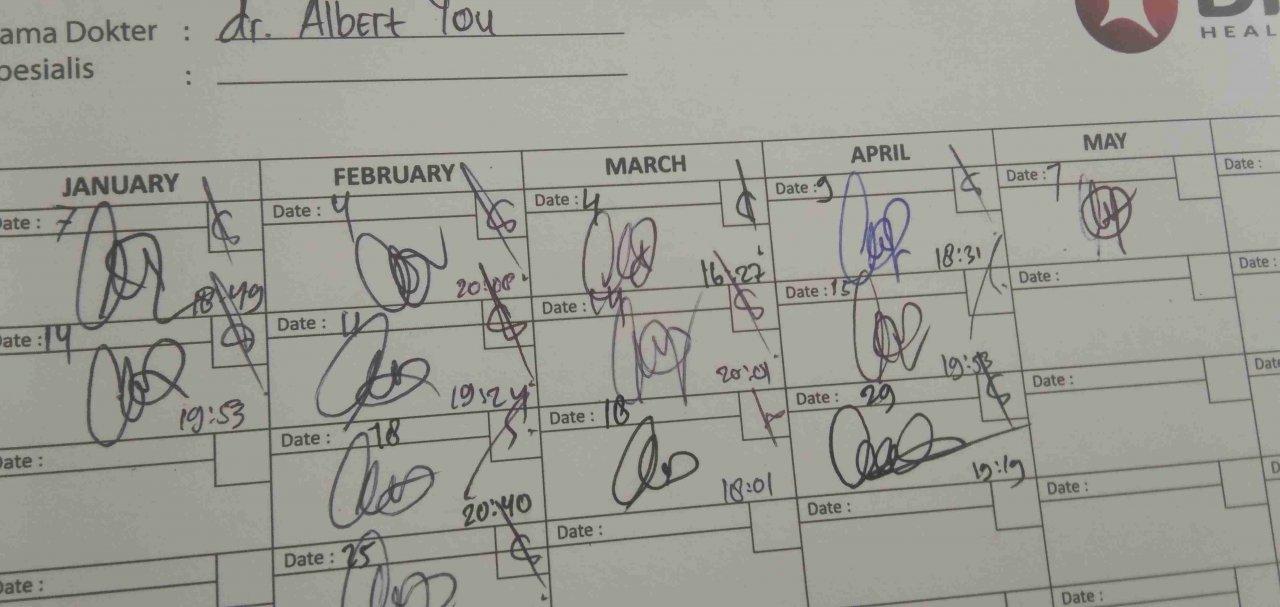 ama Dokter : dr. Albert You
pesialis :
HEAL
JANUARY FEBRUARY MARCH APRIL MAY
ate : 7 Date : 4 Date : 4 Date : 9 Date : 7 Date :
18:49 20:08 16:27 18:31
ate : 14 Date : 11 Date : Date : 15 Date : Date :
19:53 19:24 20:01 19:53
ate : Date : 18 Date : 18 Date : 29 Date : Date
20:40 18:01 19:19
ate : Date : 25 Date : Date : Date : D
Date :